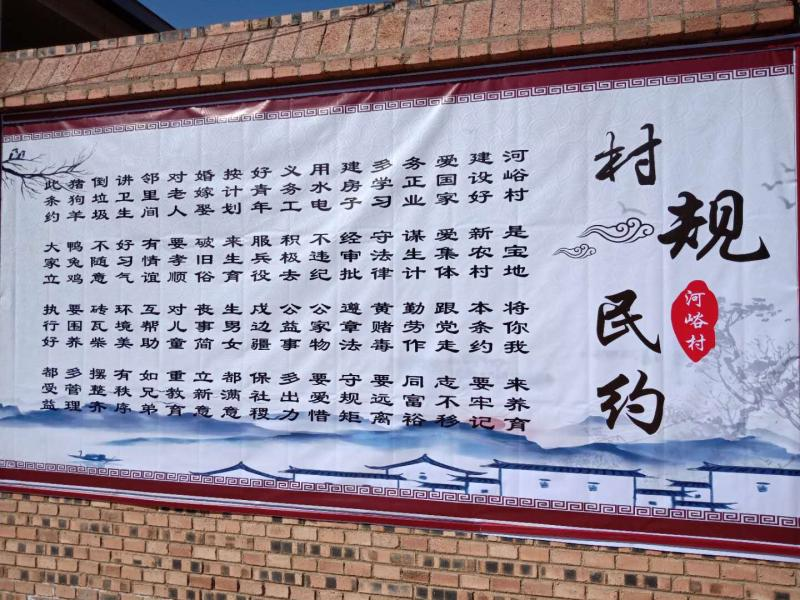 村规民约
河峪村
河峪村 是宝地 将你我 来养育
建设好 新农村 本条约 要牢记
爱国家 爱集体 跟党走 志不移
务正业 谋生计 勤劳作 同富裕
多学习 守法律 黄赌毒 要远离
建房子 经审批 遵章法 守规矩
用水电 不违纪 公家物 要爱惜
义务工 积极去 公益事 多出力
好青年 服兵役 戍边疆 保社稷
按计划 来生育 生男女 都满意
婚嫁娶 破旧俗 丧事简 立新意
对老人 要孝顺 对儿童 重教育
邻里间 有情谊 互帮助 如兄弟
讲卫生 好习气 环境美 有秩序
倒垃圾 不随意 砖瓦柴 摆整齐
猪狗羊 鸭兔鸡 要围养 多管理
此条约 大家立 执行好 都受益